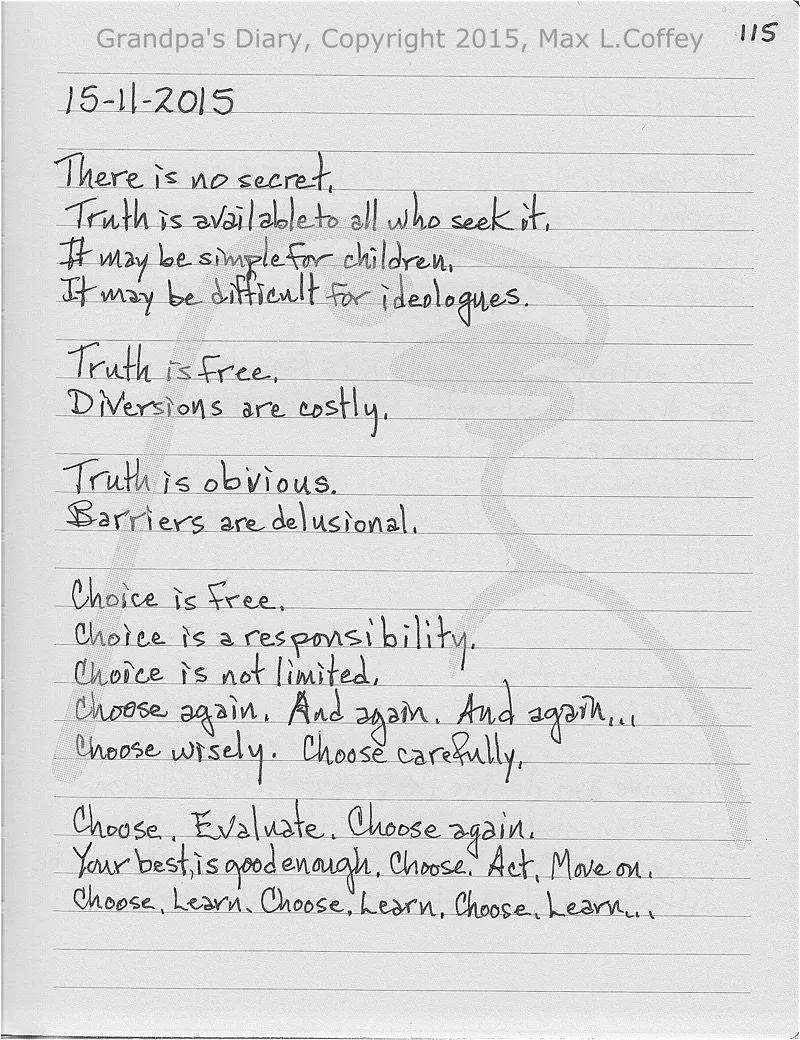 Grandpa's Diary, Copyright 2015, Max L.Coffey
115
15-11-2015
There is no secret.
Truth is available to all who seek it.
It may be simple for children.
It may be difficult for ideologues.
Truth is free.
Diversions are costly.
Truth is obvious.
Barriers are delusional.
Choice is free.
Choice is a responsibility.
Choice is not limited.
Choose again. And again. And again...
Choose wisely. Choose carefully.
Choose. Evaluate. Choose again.
Your best, is good enough. Choose. Act. Move on.
Choose. Learn. Choose. Learn. Choose. Learn...